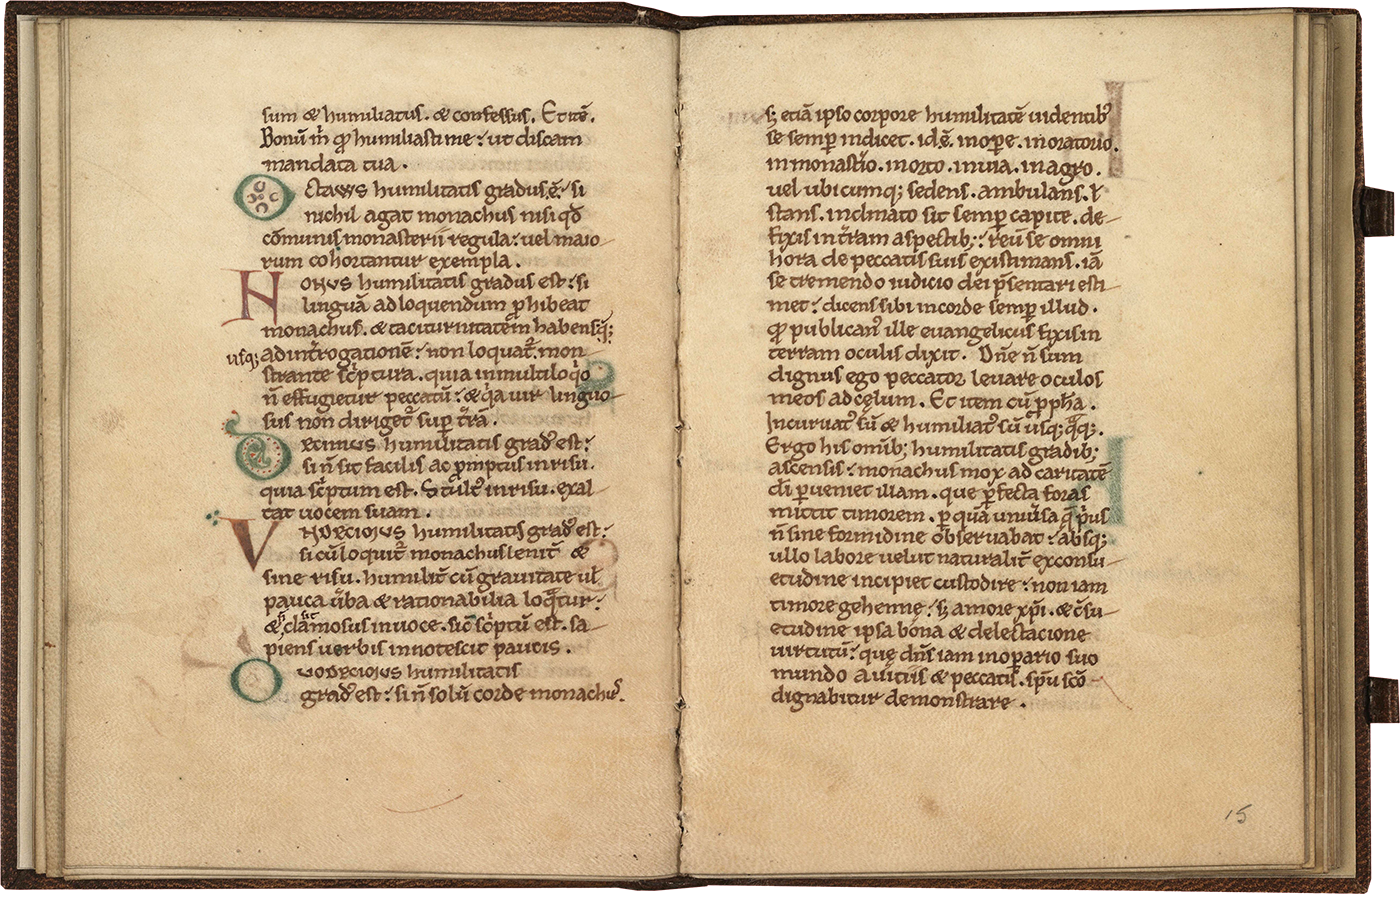 sum & humiliatus. & confessus. Et itē.
Bonū m̄ qđ humiliasti me: ut discam
mandata tua.
Octavus humilitatis gradus. ē. si
nichil agat monachus nisi qđ
cōmunis monasterii regula: uel maio-
rum cohortantur exempla.
Nonus humilitatis gradus est: si
linguā ad loquendum ꝓhibeat
monachus. & taciturnitatem habens
usq; ad int̄rogationē: non loquat᷑. mon-
strante sc̄ptura. quia in multiloqo
n̄ effugietur peccatū: & qa uir linguo-
sus non diriget᷑ sup̄ t̄rā.
Decimus humilitatis grad᷒ est:
si n̄ sit facilis ac ꝓmptus in risu.
quia sc̄ptum est. Stult᷒ in risu. exal-
tat uocem suam.
Vndecimus humilitatis grad᷒ est:
si cū loquit᷑ monachus lenit̄ &
sine risu. humilit̄ cū grauitate ul̄
pauca ūba & rationabilia loqtur:
& n̄ clamosus in uoce. sic sc̄ptū est. sa-
piens uerbis innotescit paucis.
Duodecimus humilitatis
grad᷒ est: si n̄ solū corde monach᷒.
s; etiā ipso corpore humilitatē uidentib᷒
se semp̄ indicet. id. ē. in ope. in oratorio.
in monast̄io. in orto. in uia. in agro.
uel ubicumq; sedens. ambulans. ł
stans. inclinato sit semp̄ capite. de-
fixis in t̄ram aspectib;: reū se omni
hora de peccatis suis existimans. iā
se tremendo iudicio dei p̄sentari esti
met: dicens sibi in corde semp̄ illud.
qđ publican᷒ ille euangelicus fixis in
terram oculis dixit. Dn̄e n̄ sum
dignus ego peccator leuare oculos
meos ad cęlum. Et item cū ꝓph̄a.
Incuruat᷒ sū & humiliat᷒ sū usq; qq;.
Ergo his omīb; humilitatis gradib;
ascensis: monachus mox ad caritatē
dī p̄ueniet illam. que p̄fecta foras
mittit timorem. p̄ quā uniūsa q̄ p̄us
n̄ sine formidine obseruabat: absq;
ullo labore uelut naturalit̄ ex consu-
etudine incipiet custodire: non iam
timore gehennę: s; amore xp̄i. & c̄su-
etudine ipsa bona & delectacione
uirtutū: quę dn̄s iam in operario suo
mundo a uitiis & peccatis. sp̄u sc̄o
dignabitur demonstrare.
15